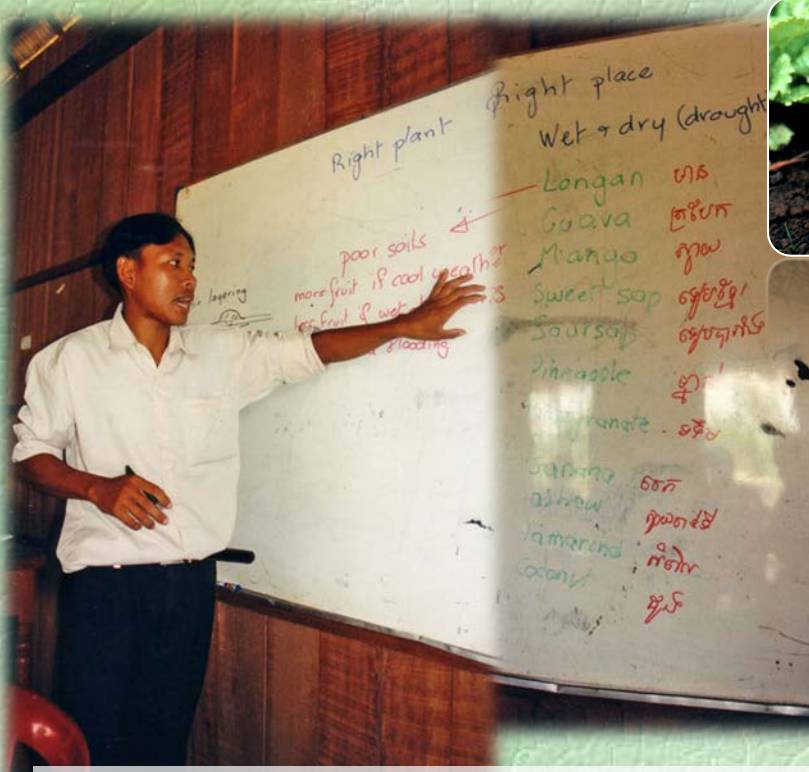 Right plant Right place
Wet & dry (drought
Longan មៀន
Guava ត្របែក
Mango ស្វាយ
Sweet sop ទៀបខ្មែរ
Soursop ទៀបបារាំង
Pineapple ម្នាស់
granate ទទឹម
Banana ចេក
ashew ស្វាយចន្ទី
Tamarind អំពិល
Coconut ដូង
poor soils
more fruit if cool weather
less fruit if wet
flooding
layering